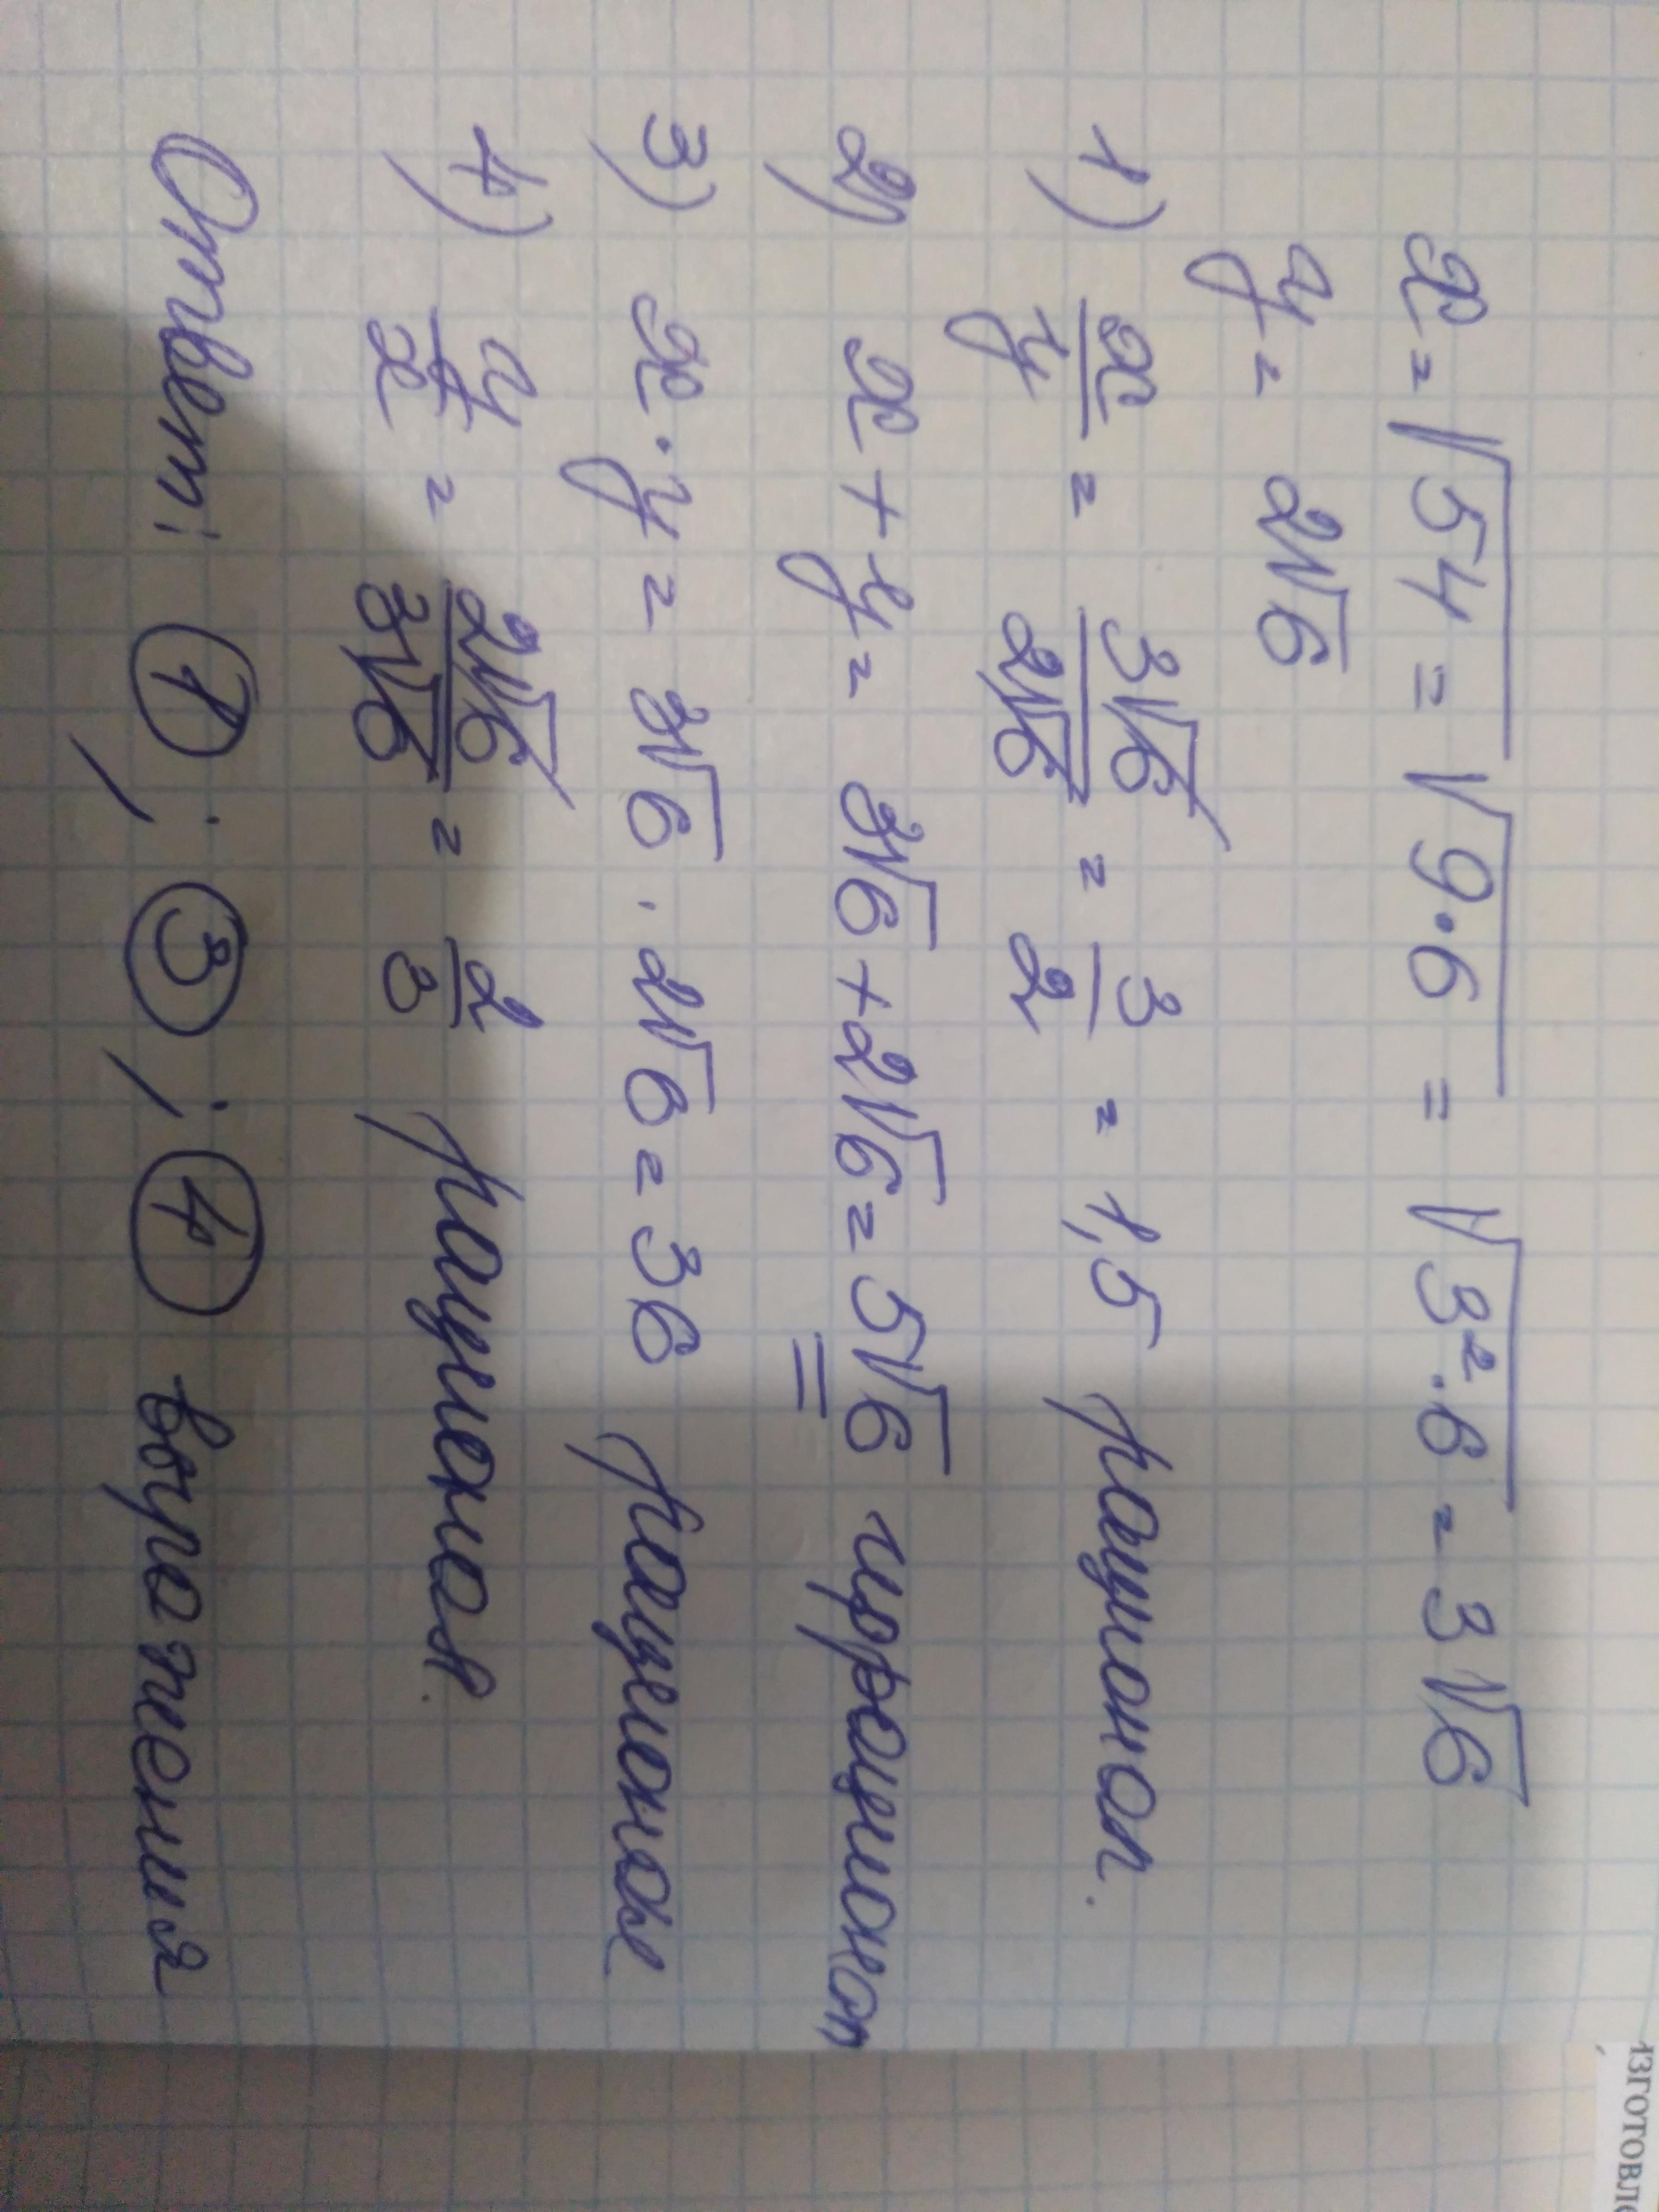 x = √54 = √9·6 = √3²·6 = 3√6
y = 2√6
1) x/y = 3√6/2√6 = 3/2 = 1,5 рационал.
2) x + y = 3√6 + 2√6 = 5√6 иррационал
3) x · y = 3√6 · 2√6 = 36 рационал
4) y/x = 2√6/3√6 = 2/3 рационал.
Ответ: 1 ; 3 ; 4 выражения
изготовле